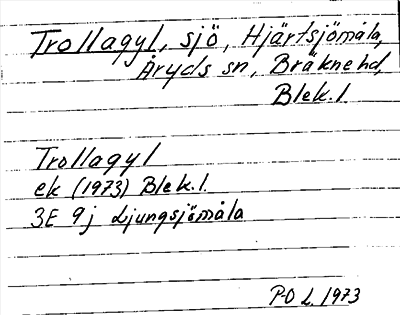 Trollagyl, sjö, Hjärtsjömåla,
Åryds sn, Bräkne hd,
Blek. l.
Trollagyl
ek (1973) Blek. l.
3E 9j Ljungsjömåla
P-O L. 1973